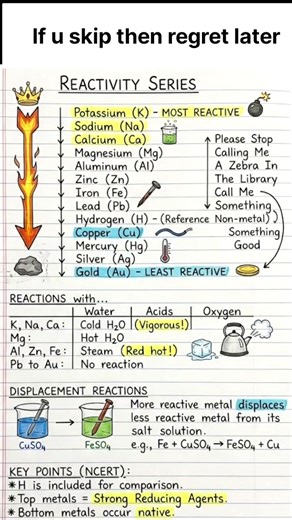 If u skip then regret later
REACTIVITY SERIES
Potassium (K) - MOST REACTIVE
Sodium (Na)
Calcium (Ca)
Magnesium (Mg)
Aluminum (Al)
Zinc (Zn)
Iron (Fe)
Lead (Pb)
Hydrogen (H) - (Reference Non-metal)
Copper (Cu)
Mercury (Hg)
Silver (Ag)
Gold (Au) - LEAST REACTIVE
Please Stop
Calling Me
A Zebra In
The Library
Call Me
Something
Something
Good
REACTIONS with...
Water Acids Oxygen
K, Na, Ca: Cold H₂O (Vigorous!)
Mg: Hot H₂O
Al, Zn, Fe: Steam (Red hot!)
Pb to Au: No reaction
DISPLACEMENT REACTIONS
CuSO₄
FeSO₄
More reactive metal displaces
less reactive metal from its
salt solution.
e.g., Fe + CuSO₄ → FeSO₄ + Cu
KEY POINTS (NCERT):
* H is included for comparison.
* Top metals = Strong Reducing Agents.
* Bottom metals occur native.